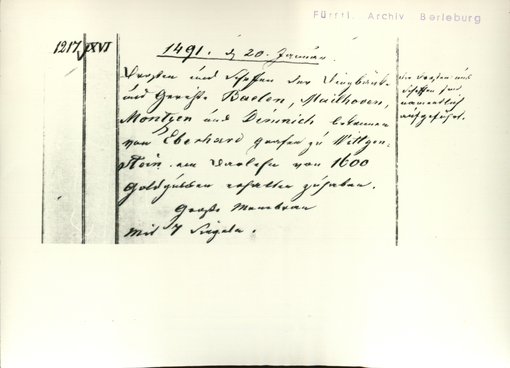 Fürstl. Archiv Berleburg
1217 XVI
1491. d 20. Januar.
Vögten und Schöffen der Dingbänke
und Gerichte Baelen, Mailhoven,
Montzen und Dimnich bekennen
von Eberhard Grafen zu Wittgen-
stein ein Darlehn von 1600
Goldgulden erhalten zu haben.
Große Membran
Mit 7 Siegeln.
die Vögten und
Schöffen sind
namentlich
aufgeführt.